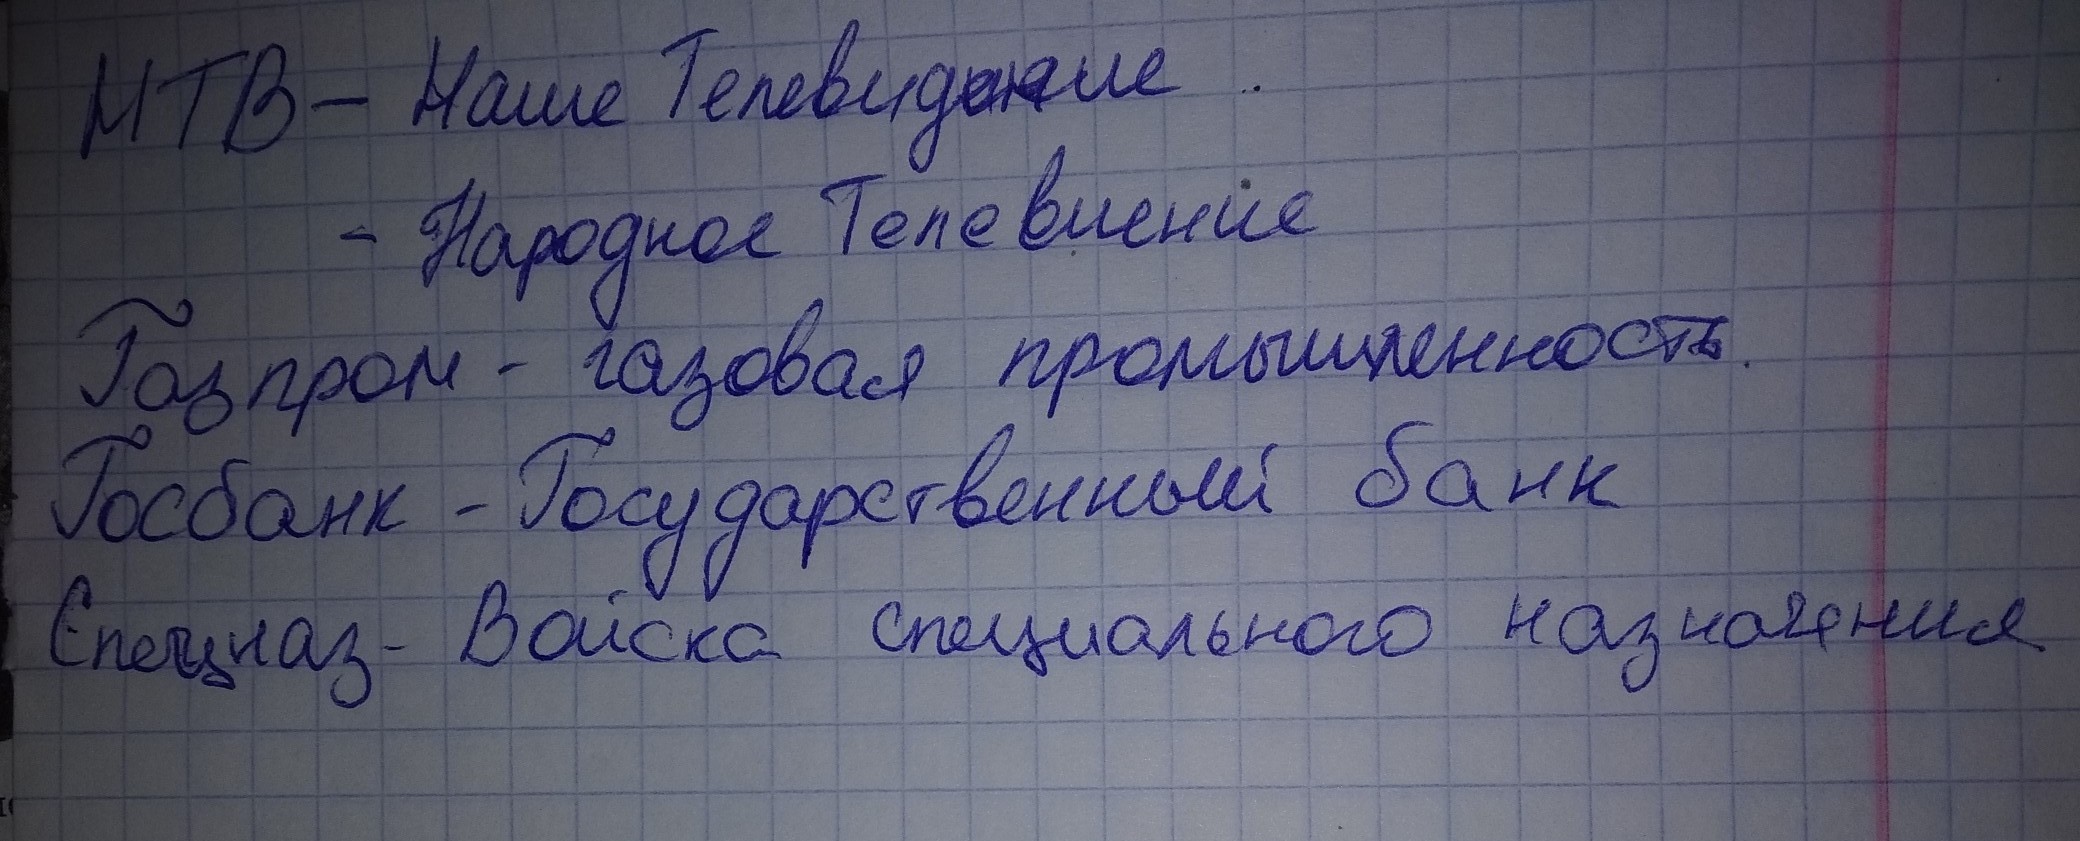 НТВ - Наше Телевидение
- Народное Телевиение
Газпром - газовая промышленность.
Госбанк - Государственный банк
Спецназ - Войска специального назначения